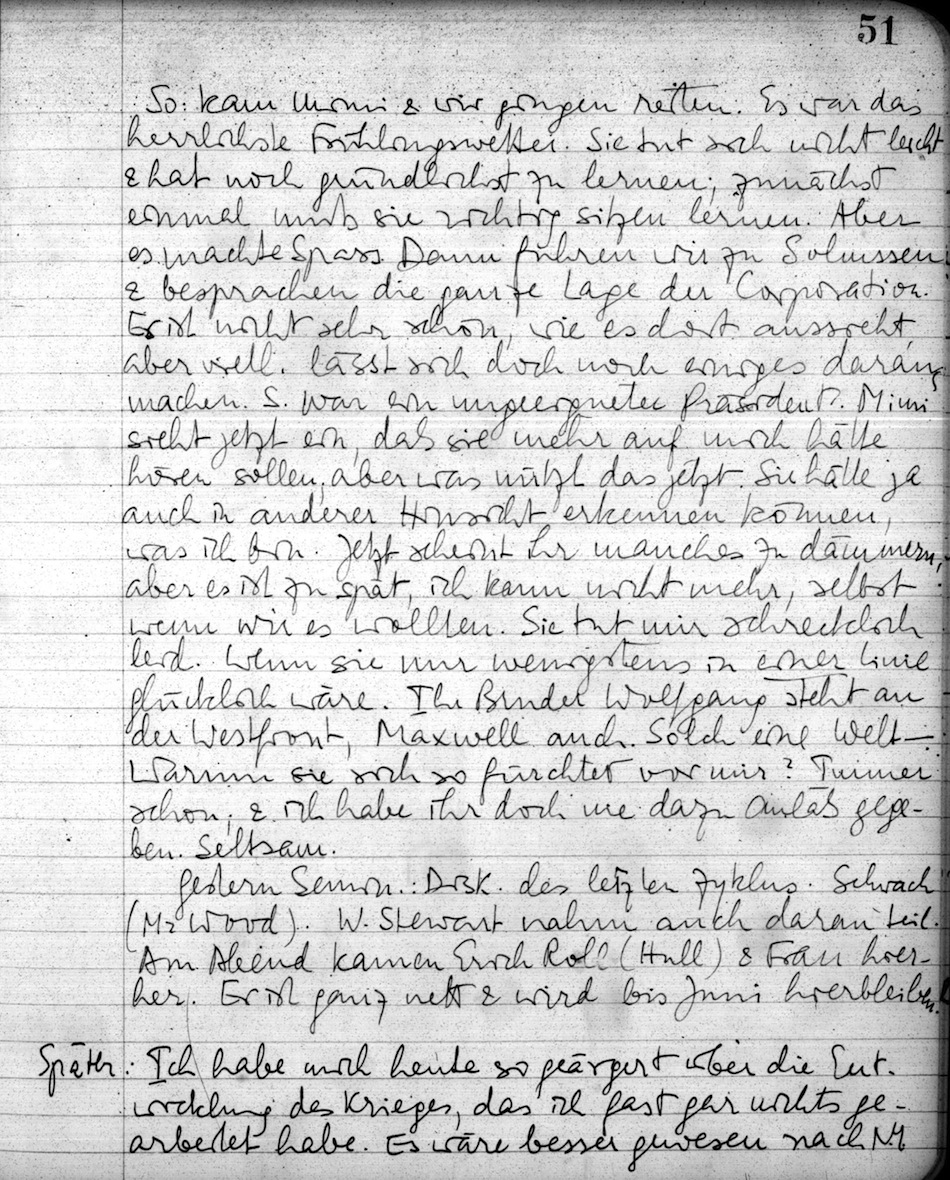 51
So: kam Mimi & wir gingen reiten. Es war das
herrlichste Frühlingswetter. Sie tut sich nicht leicht
& hat noch gründlichst zu lernen; zunächst
einmal muß sie richtig sitzen lernen. Aber
es machte Spass. Dann fuhren wir zu
& besprachen die ganze Lage der Corporation.
Es ist nicht sehr schön, wie es dort aussieht,
aber viell. lässt sich doch noch einiges daraus
machen. S. war ein ungeeigneter Präsident. Mimi
sieht jetzt ein, daß sie mehr auf mich hätte
hören sollen, aber was nützt das jetzt. Sie hätte ja
auch in anderer Hinsicht erkennen können,
was ich bin. Jetzt scheint ihr manches zu dämmern,
aber es ist zu spät, ich kann nicht mehr, selbst
wenn wir es wollten. Sie tut mir schrecklich
leid. Wenn sie nur wenigstens in einer Linie
glücklich wäre. Ihr Bruder Wolfgang steht an
der Westfront, Maxwell auch. Solch eine Welt —.
Warum sie sich so fürchtet vor mir? Immer
schon; & ich habe ihr doch nie dazu Anlaß gege-
ben. Seltsam.
Gestern Semin.: Disk. des letzten Zyklus. Schwach
(Mr Wood). W. Stewart nahm auch daran teil.
Am Abend kamen Erich Roll (Hull) & Frau hier-
her. Er ist ganz nett & wird bis Juni hierbleiben.
Später: Ich habe mich heute so geärgert über die Ent-
wicklung des Krieges, das ich fast gar nichts ge-
arbeitet habe. Es wäre besser gewesen nach NY